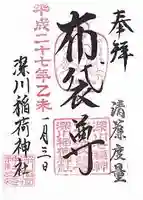 奉拝
清簾度量
布袋尊
平成二十七年乙未
一月三日
深川稲荷神社